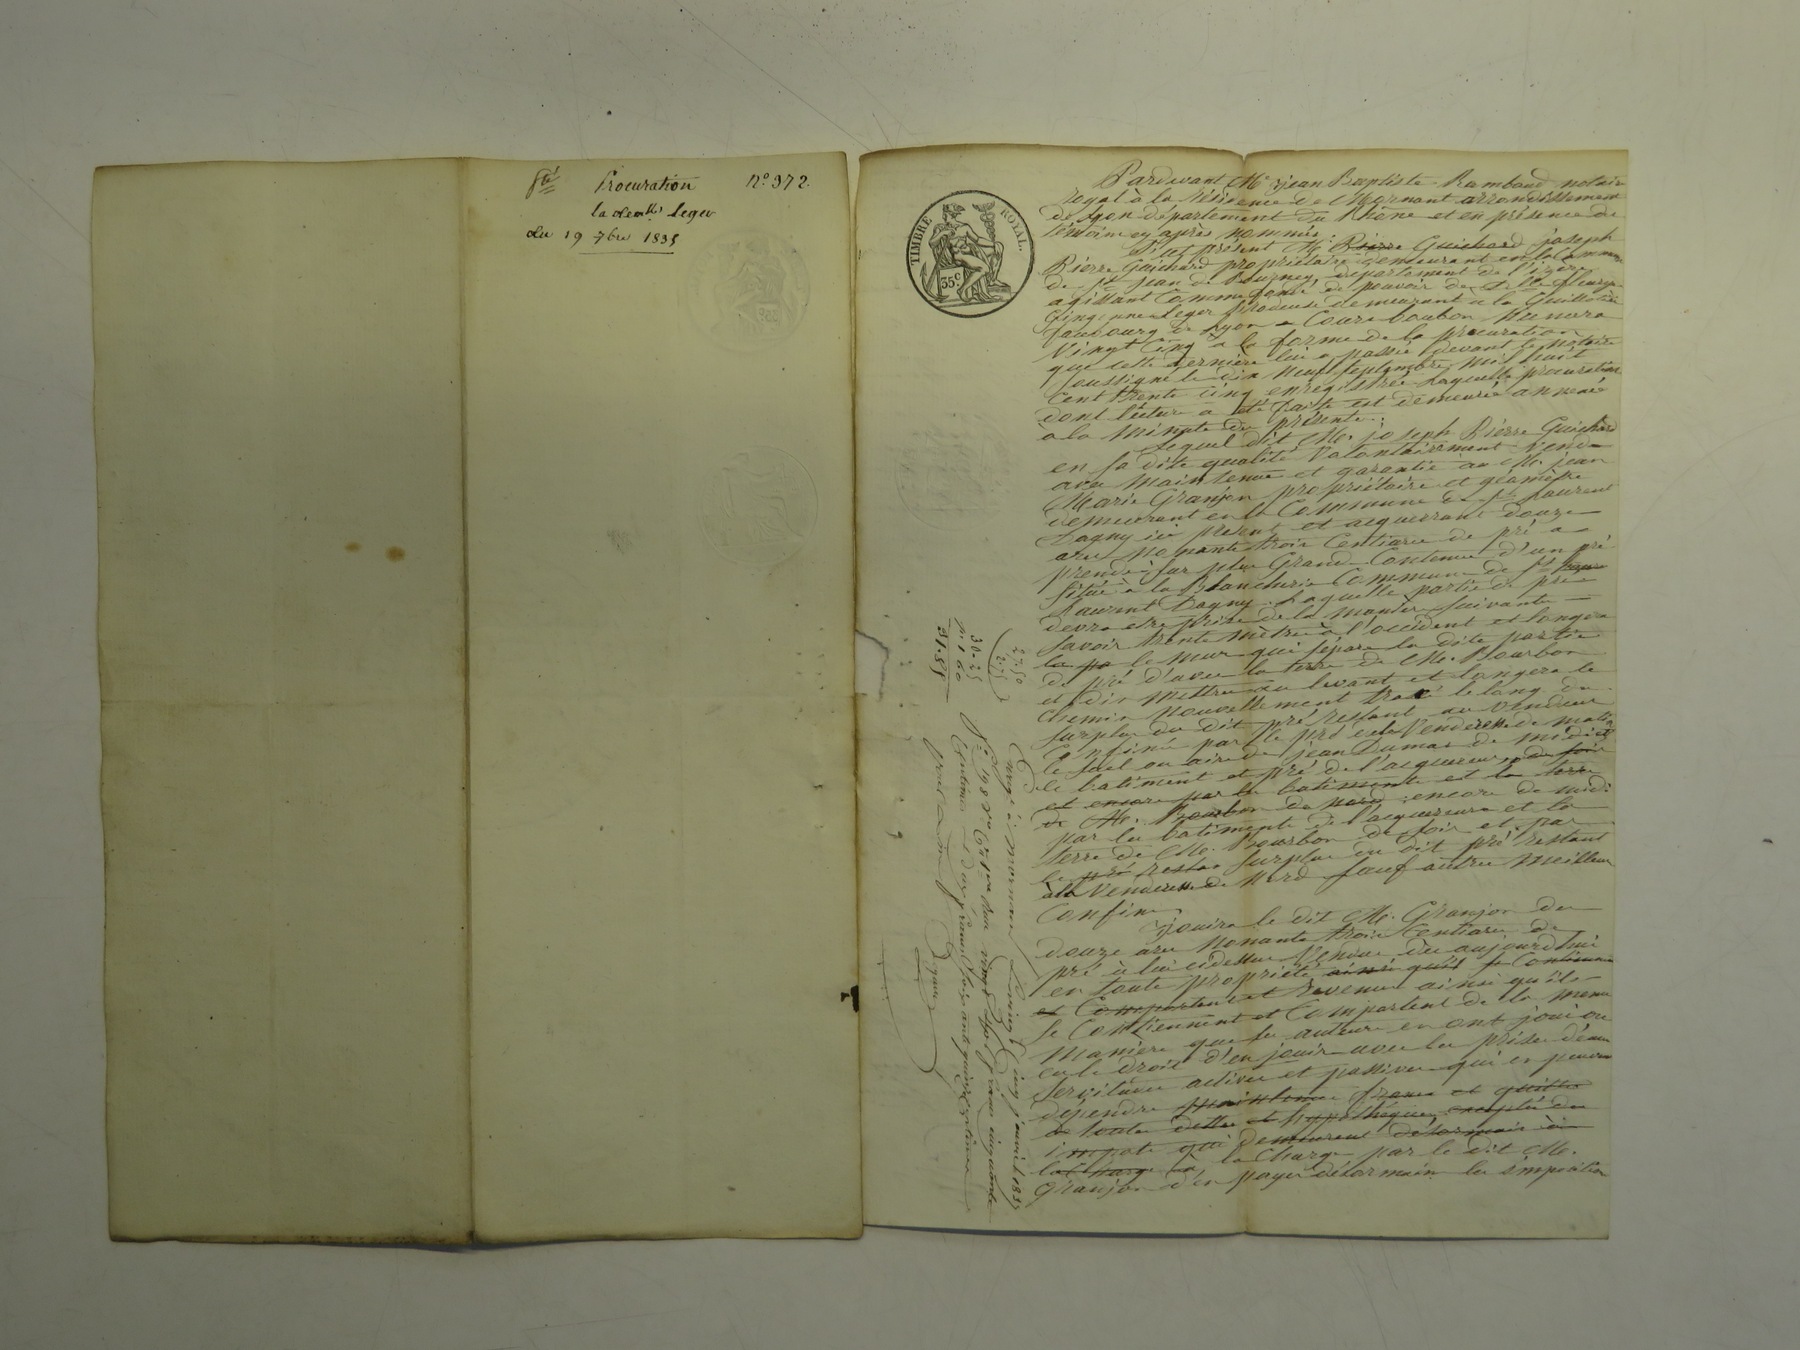 Procuration N° 372.
la demlle leger
du 19 7bre 1835
TIMBRE ROYAL.
35c.
Pardevant Me Jean Baptiste Rambaud notaire
royal à la résidence de Mornant arrondissement
de Lyon département du Rhône et en présence de
témoins cy après nommés.
Fut présent Mr Pierre Guichard joseph
Pierre Guichard propriétaire demeurant en la Commune
de st jean de Bournay, département de l'izère
agissant Comme fondé de pouvoir de Dlle fleurye
leger demeurant a la Guillotière
faubourg de Lyon Cours bourbon Numero
Vingt Cinq à la forme de la procuration
que cette dernière lui a passée devant le notaire
soussigné le dix neuf septembre mil huit
Cent trente Cinq enregistrée laquelle procuration
dont lecture a été faite est demeurée annexée
à la Minute des présentes.
Lequel dit Mr. joseph Pierre Guichard
en sa dite qualité Volontairement Vend
avec Maintenue et garantie au Mr. jean
Marie Granjon propriétaire et géomètre
demeurant en la Commune de st Laurent
Dagny ici présent et acquérant douze
ares Nonante trois Centiares de pré a
prendre sur plus Grand Contenue d'un pré
situé à la Blancherie Commune de st
Laurent Dagny. Laquelle partie de pré
devra etre prise de la Manière suivante
Savoir trente mètres à l'occident et longera
la pa le mur qui sépare la dite partie
de pré d'avec la terre de Mr. Bourbon
et dix Mettres au levant et longera le
Chemin Nouvellement tracé le long du
surplus du dit pré restant au Vendeur
Confiné par le pré de la Venderesse de matin
le suel ou aire de jean Dumas de midi et
le batiment et pré de l'acquéreur, de soir
et encore par les batiments et la terre
de Mr. Bourbon de nord encore de midi
par les batiments de l'acquéreur et la
terre de Mr. Bourbon de soir et par
le pré restan surplus du dit pré restant
à la Venderesse de Nord sauf autres meilleurs
Confins
Jouira le dit Mr. Granjon des
douze ares Nonante trois Centiares de
pré à lui cidessus Vendus dès aujourd'hui
en toute propriété ainsi qu'il se Contiennent
et Comportent et revenus ainsi qu'ils
se Contiennent et Comportent de la meme
Manière que ses auteurs en ont joui ou
eu le droit d'en jouir avec les prises d'eau
Servitudes actives et passives qui en peuvent
dépendre franc et quitte
de toutes dettes et hypothèques exceptés des
impots qui demeurent désormais à
la Charge à la Charge par le dit Mr.
Granjon d'en payer désormais les impositions
27.50
2.75
30-25
1 60
31.85
Enregé à Mornant le vingt cinq janvier 1837